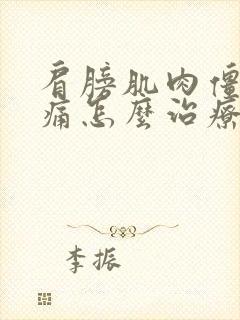 肩膀肌肉僵
痛怎麼治療
李振